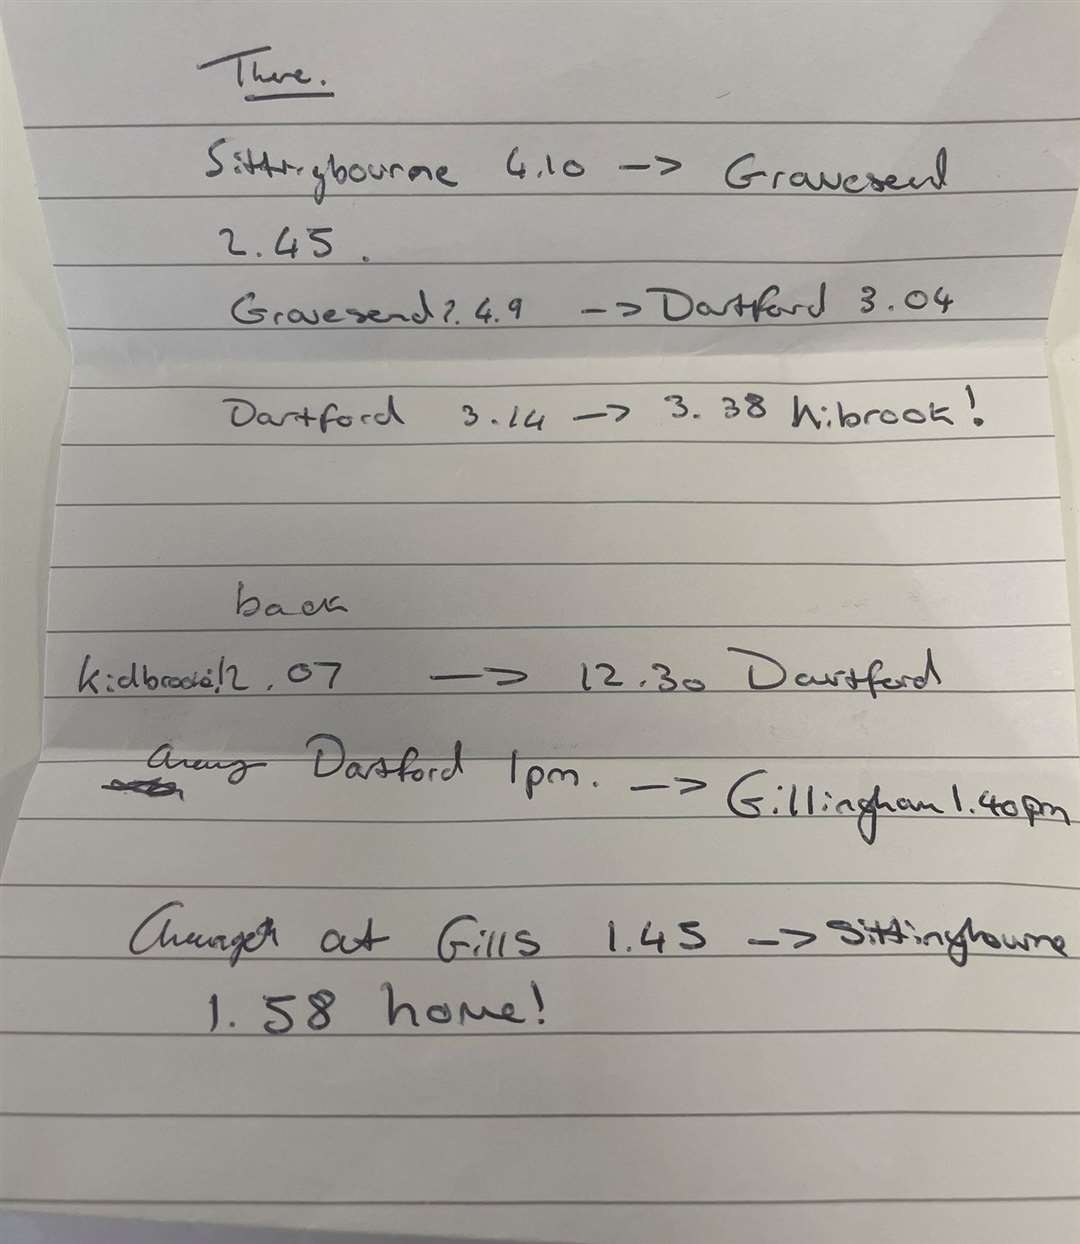 There.
Sittingbourne 4.10 -> Gravesend
2.45.
Gravesend 2.49 -> Dartford 3.04
Dartford 3.14 -> 3.38 kibrook!
back
kidbrooke 12.07 -> 12.30 Dartford
Dartford 1pm. -> Gillingham 1.40pm
at Gills 1.45 -> Sittingbourne
1.58 home!